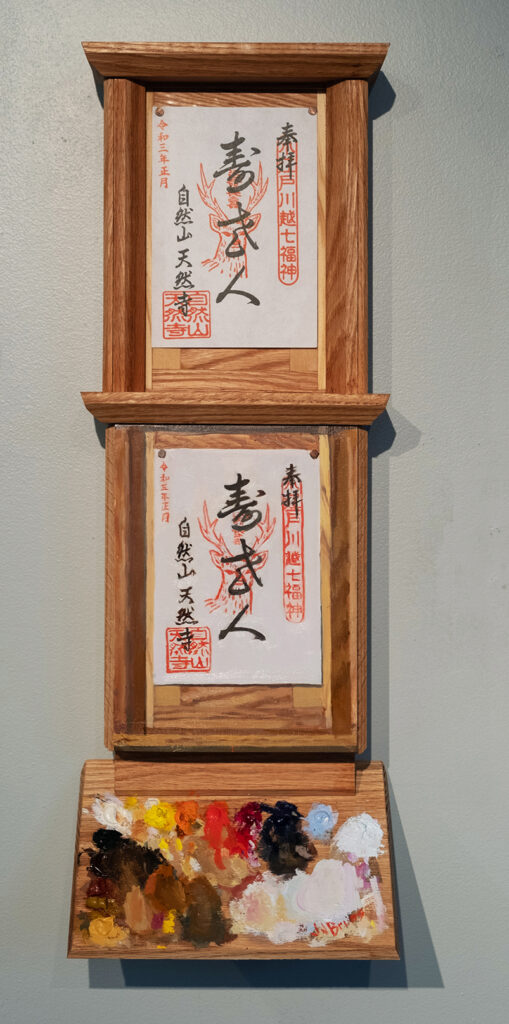 奉拝
小江戸川越七福神
寿老人
令和三年正月
自然山 天然寺
自然山
天然寺
奉拝
小江戸川越七福神
寿老人
令和三年正月
自然山 天然寺
自然山
天然寺